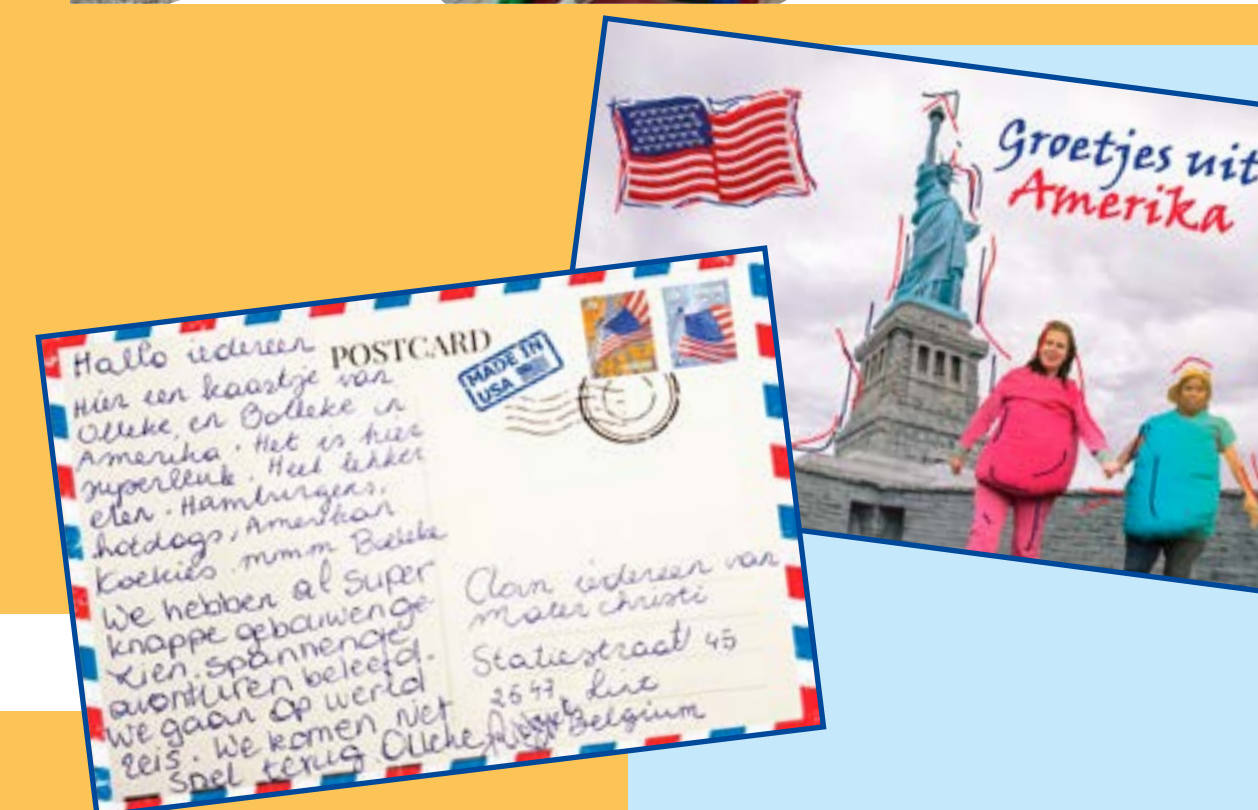 Groetjes uit
Amerika
POSTCARD
MADE IN
USA
Hallo iedereen
Hier een kaartje van
Olleke en Bolleke in
Amerika. Het is hier
superleuk. Heel lekker
eten. Hamburgers,
hotdogs, Amerikan
koekies mmm
We hebben al super
knappe gebouwen ge-
zien. spannende
avonturen beleefd.
We gaan op wereld
reis. We komen
snel terug Olleke
Aan iedereen van
mater christi
Statiestraat 45
2547 Lint
Belgium